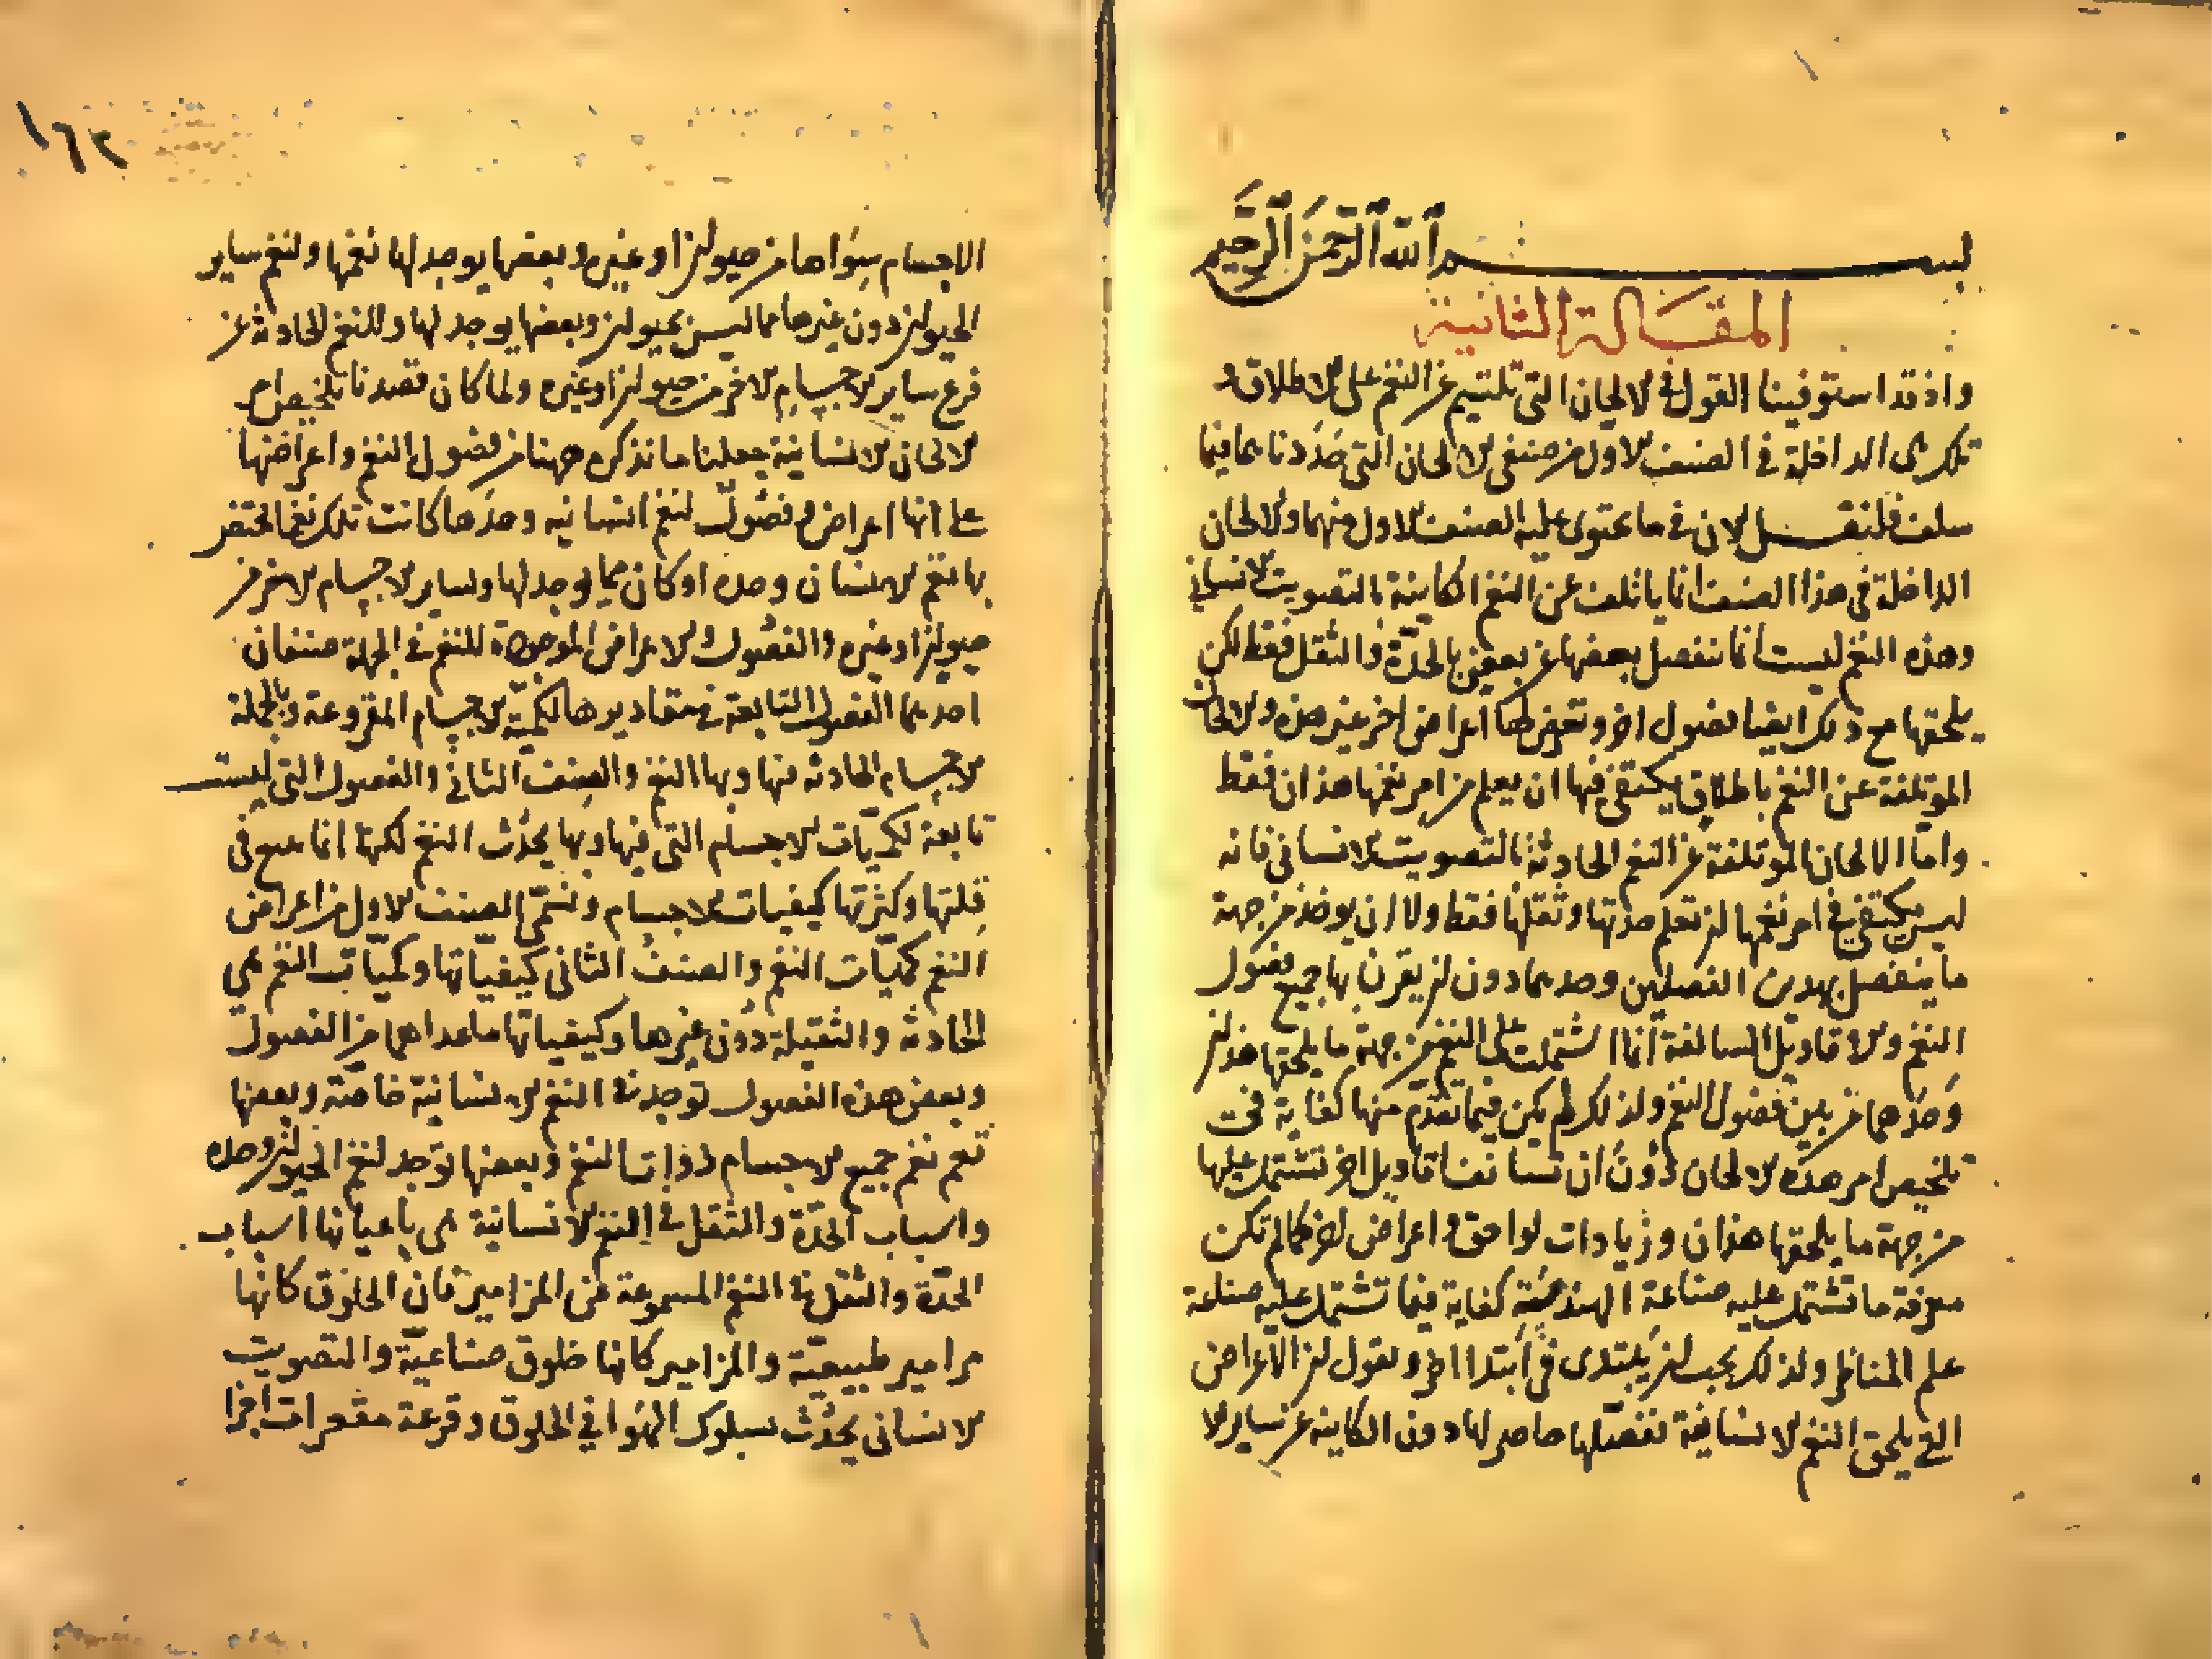 بسم الله الرحمن الرحيم
المقالة الثانية
واذ قد استوفينا القول في الالحان التي تلتيم عن النغم على الاطلاق و
تلك هي الداخلة في الصنف الاول من صنفي الالحان التي حددناهما فيما
سلف فلنقل الان في ما يحتوى عليه الصنف الاول منهما والالحان
الداخلة في هذا الصنف انما ياتلف عن النغم الكاينة بالتصويت الانساني
وهذه النغم ليست انما ينفصل بعضها عن بعض بالحدة والثقل فقط لكن
يلحقها مع ذلك ايضا فصول اخر وتعرض لها اعراض اخر غير هذه والالحان
الموتلفة عن النغم باطلاق يكتفى فيها ان يعلم من امر نغمها هذان فقط
واما الالحان الموتلفة عن النغم الحادثة بالتصويت الانساني فانه
ليس يكتفى في امر نغمها ان تعلم حدتها وثقلها فقط ولا ان يوخذ من جهة
ما ينفصل بهذين الفصلين وحدهما دون ان يقرن بها جميع فصول
النغم والاقاويل السالفة انما اشتملت على النغم من جهة ما يلحقها هذان
وحدهما من بين فصول النغم ولذلك لم يكن فيما تقدم منها كفاية في
تلخيص امر هذه الالحان دون ان تستانف اقاويل اخر تشتمل عليها
من جهة ما يلحقها هذان وزيادات لواحق واعراض اخر كما لم تكن
معرفة ما تشتمل عليه صناعة الهندسة كفاية فيما تشتمل عليه صناعة
علم المناظر ولذلك يجب ان يبتدى في ابتدا اخر ونقول ان الاعراض
التي يلحق النغم الانسانية تفصلها حاصر لها دون الكاينة عن ساير الا
١٦٢
الاجسام سواها من حيوان او غيره وبعضها يوجد لها نغمها ولنغم ساير
الحيوان دون غيرها مما ليس بحيوان وبعضها يوجد لها وللنغم الحادثة عن
قرع ساير الاجسام الاخر من حيوان او غيره ولما كان قصدنا تلخيص امر
الالحان الانسانية جعلنا ما نذكره ههنا من فصول النغم واعراضها
على انها اعراض وفصول لنغم انسانيه وحدها كانت تلك نغما تختص
بها نغم الانسان وحده او كان مما يوجد لها ولساير الاجسام الاخر من
حيوان او غيره والفصول والاعراض الموجودة للنغم في الجملة صنفان
احدهما الفصول التابعة في مقاديرها لكمية الاجسام المقروعة وبالجملة
الاجسام الحادثه فيها وبها النغم والصنف الثاني والفصول التي ليست
تابعة لكميات الاجسام التي فيها وبها يحدث النغم لكنها انما تتبع في
قلتها وكثرتها كيفيات الاجسام ونسمي الصنف الاول من اعراض
النغم كميات النغم والصنف الثاني كيفياتها وكميات النغم هي
الحادثه والثقيلة دون غيرها وكيفياتها ما عداهما من الفصول
وبعض هذه الفصول توجد في النغم الانسانية خاصة وبعضها
تعم نغم جميع الاجسام ذوات النغم وبعضها توجد لنغم الحيوان وحده
واسباب الحدة والثقل في النغم الانسانية هي باعيانها اسباب
الحدة والثقل في النغم المسموعة من المزامير فان الحلوق كانها
مزامير طبيعية والمزامير كانها حلوق صناعية والتصويت
الانساني يحدث بسلوك الهوا في الحلوق وقرعة مقعرات اجزا